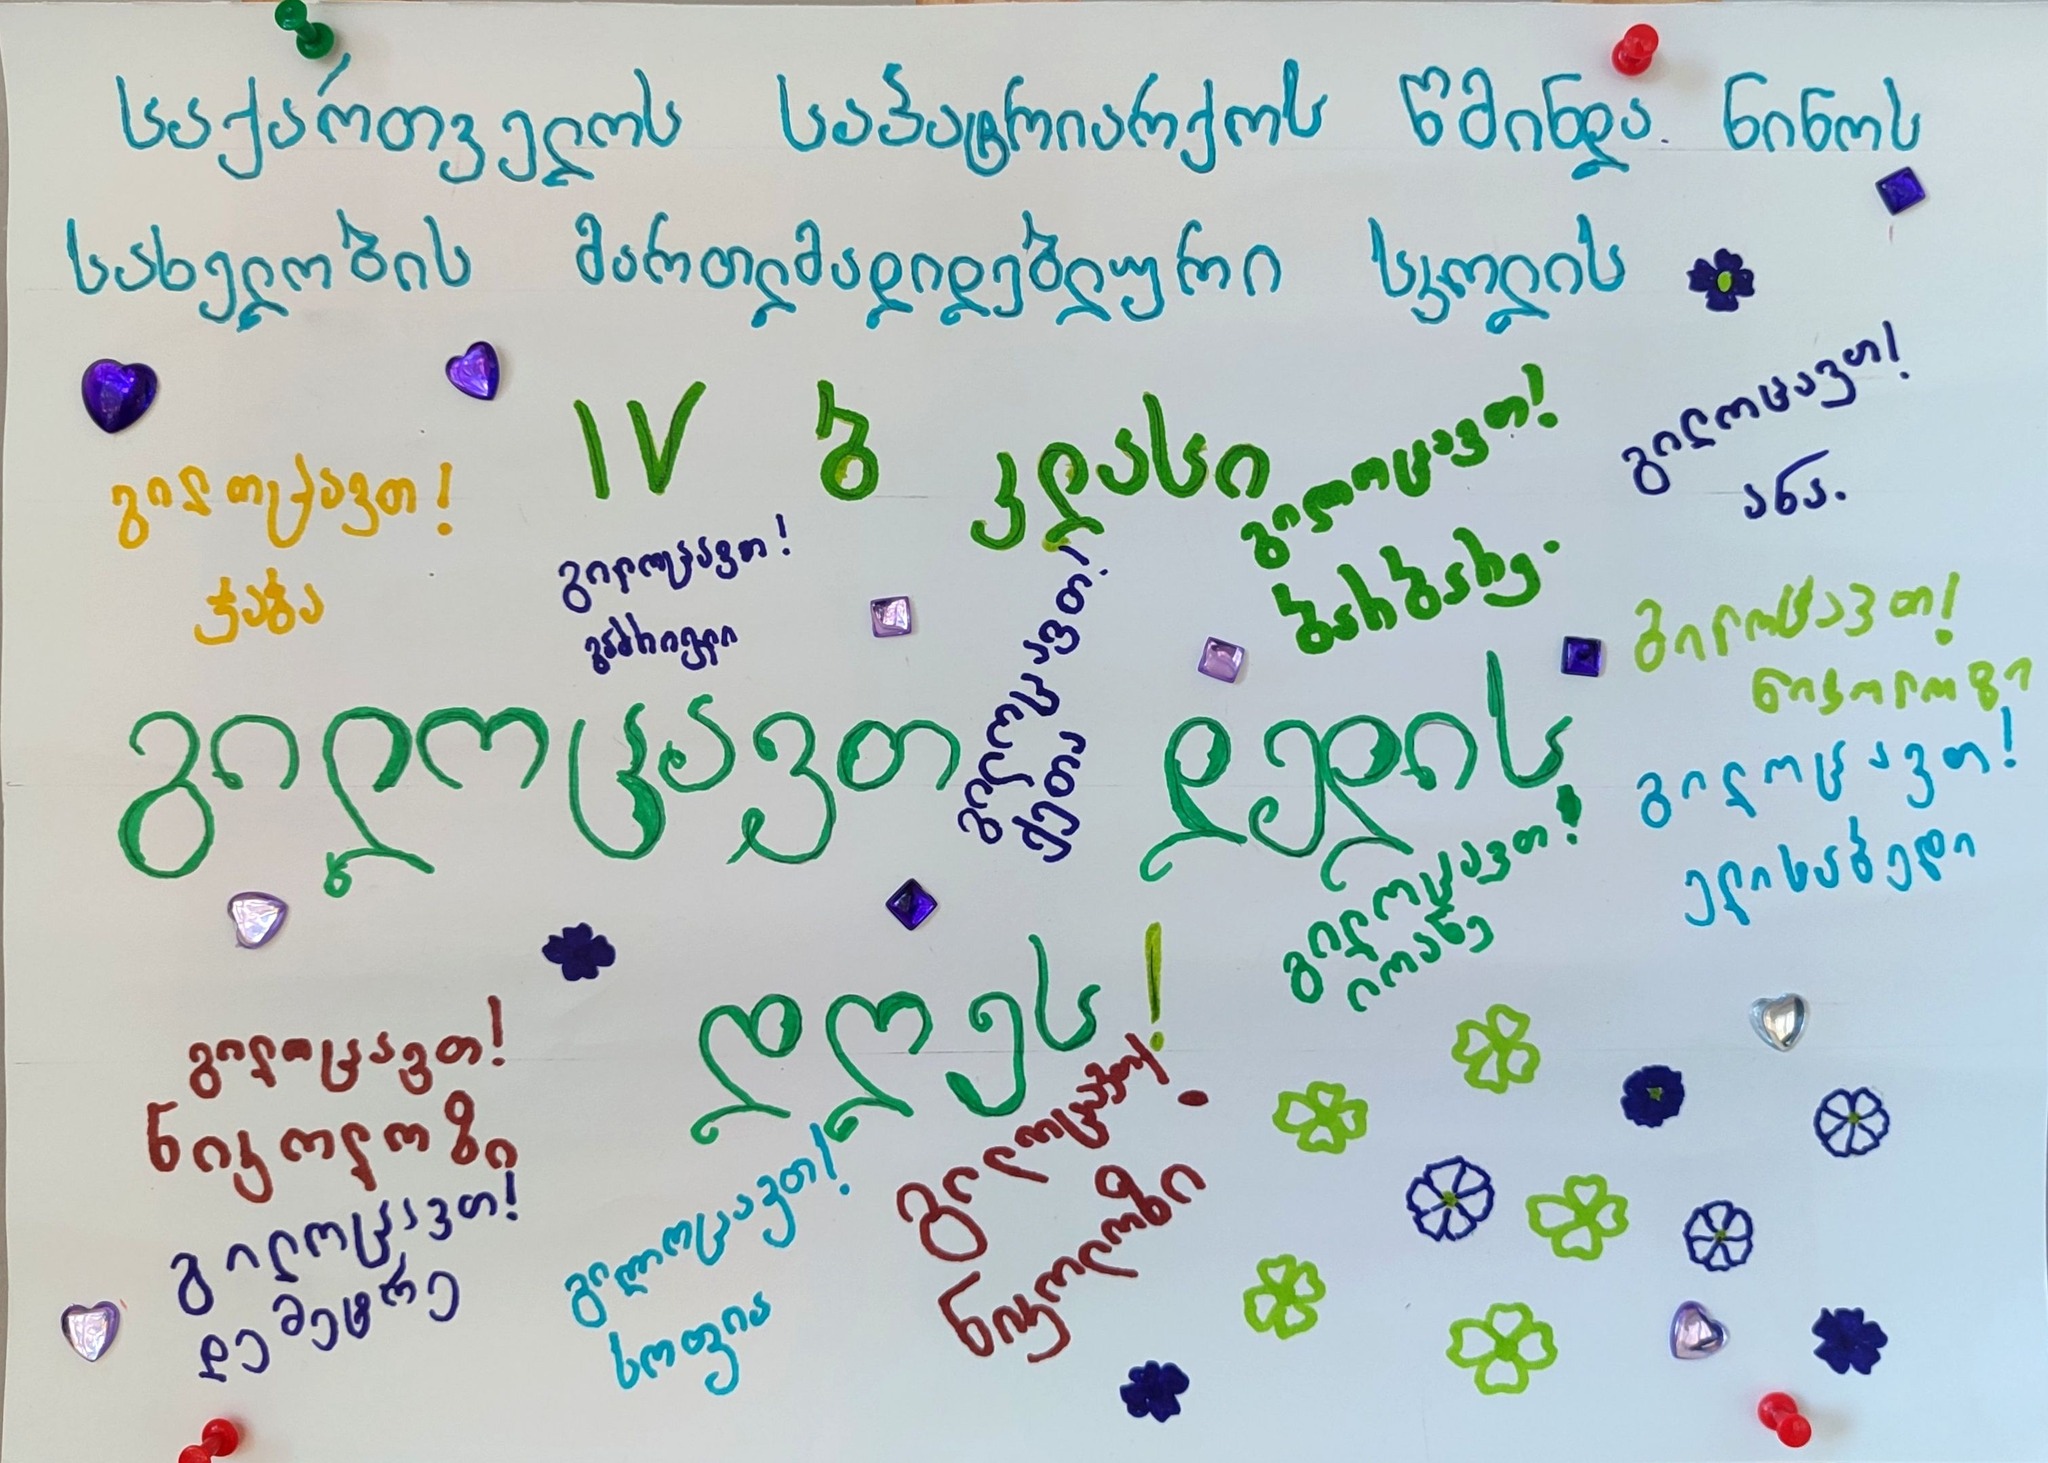 საქართველოს საპატრიარქოს წმინდა ნინოს
სახელობის მართლმადიდებლური სკოლის
IV ბ კლასი
გილოცავთ!
ჯაბა
გილოცავთ!
გაბრიელი
გილოცავთ!
ქეთა
გილოცავთ!
ბარბარე.
გილოცავთ!
ანა.
გილოცავთ!
ნიკოლოზი
გილოცავთ დედის
დღეს!
გილოცავთ!
ელისაბედი
გილოცავთ!
იოანე
გილოცავთ!
ნიკოლოზი
გილოცავთ!
დემეტრე
გილოცავთ!
სოფია
გილოცავთ!
ნიკოლოზი